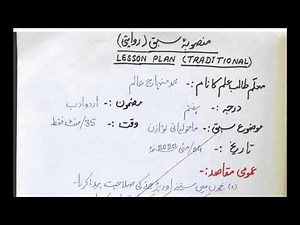 منصوبۂ سبق (روایتی)
LESSON PLAN (TRADITIONAL)
معلّم طالب علم کا نام :- محمد منہاج عالم
درجہ :- ہفتم مضمون :- اردو ادب
موضوع سبق :- ماحولیاتی توازن وقت :- 35/منٹ فقط
تاریخ :- مئی 2022ء
عمومی مقاصد :-
(۱) بچوں میں سننے اور کی صلاحیت پیدا کرنا۔